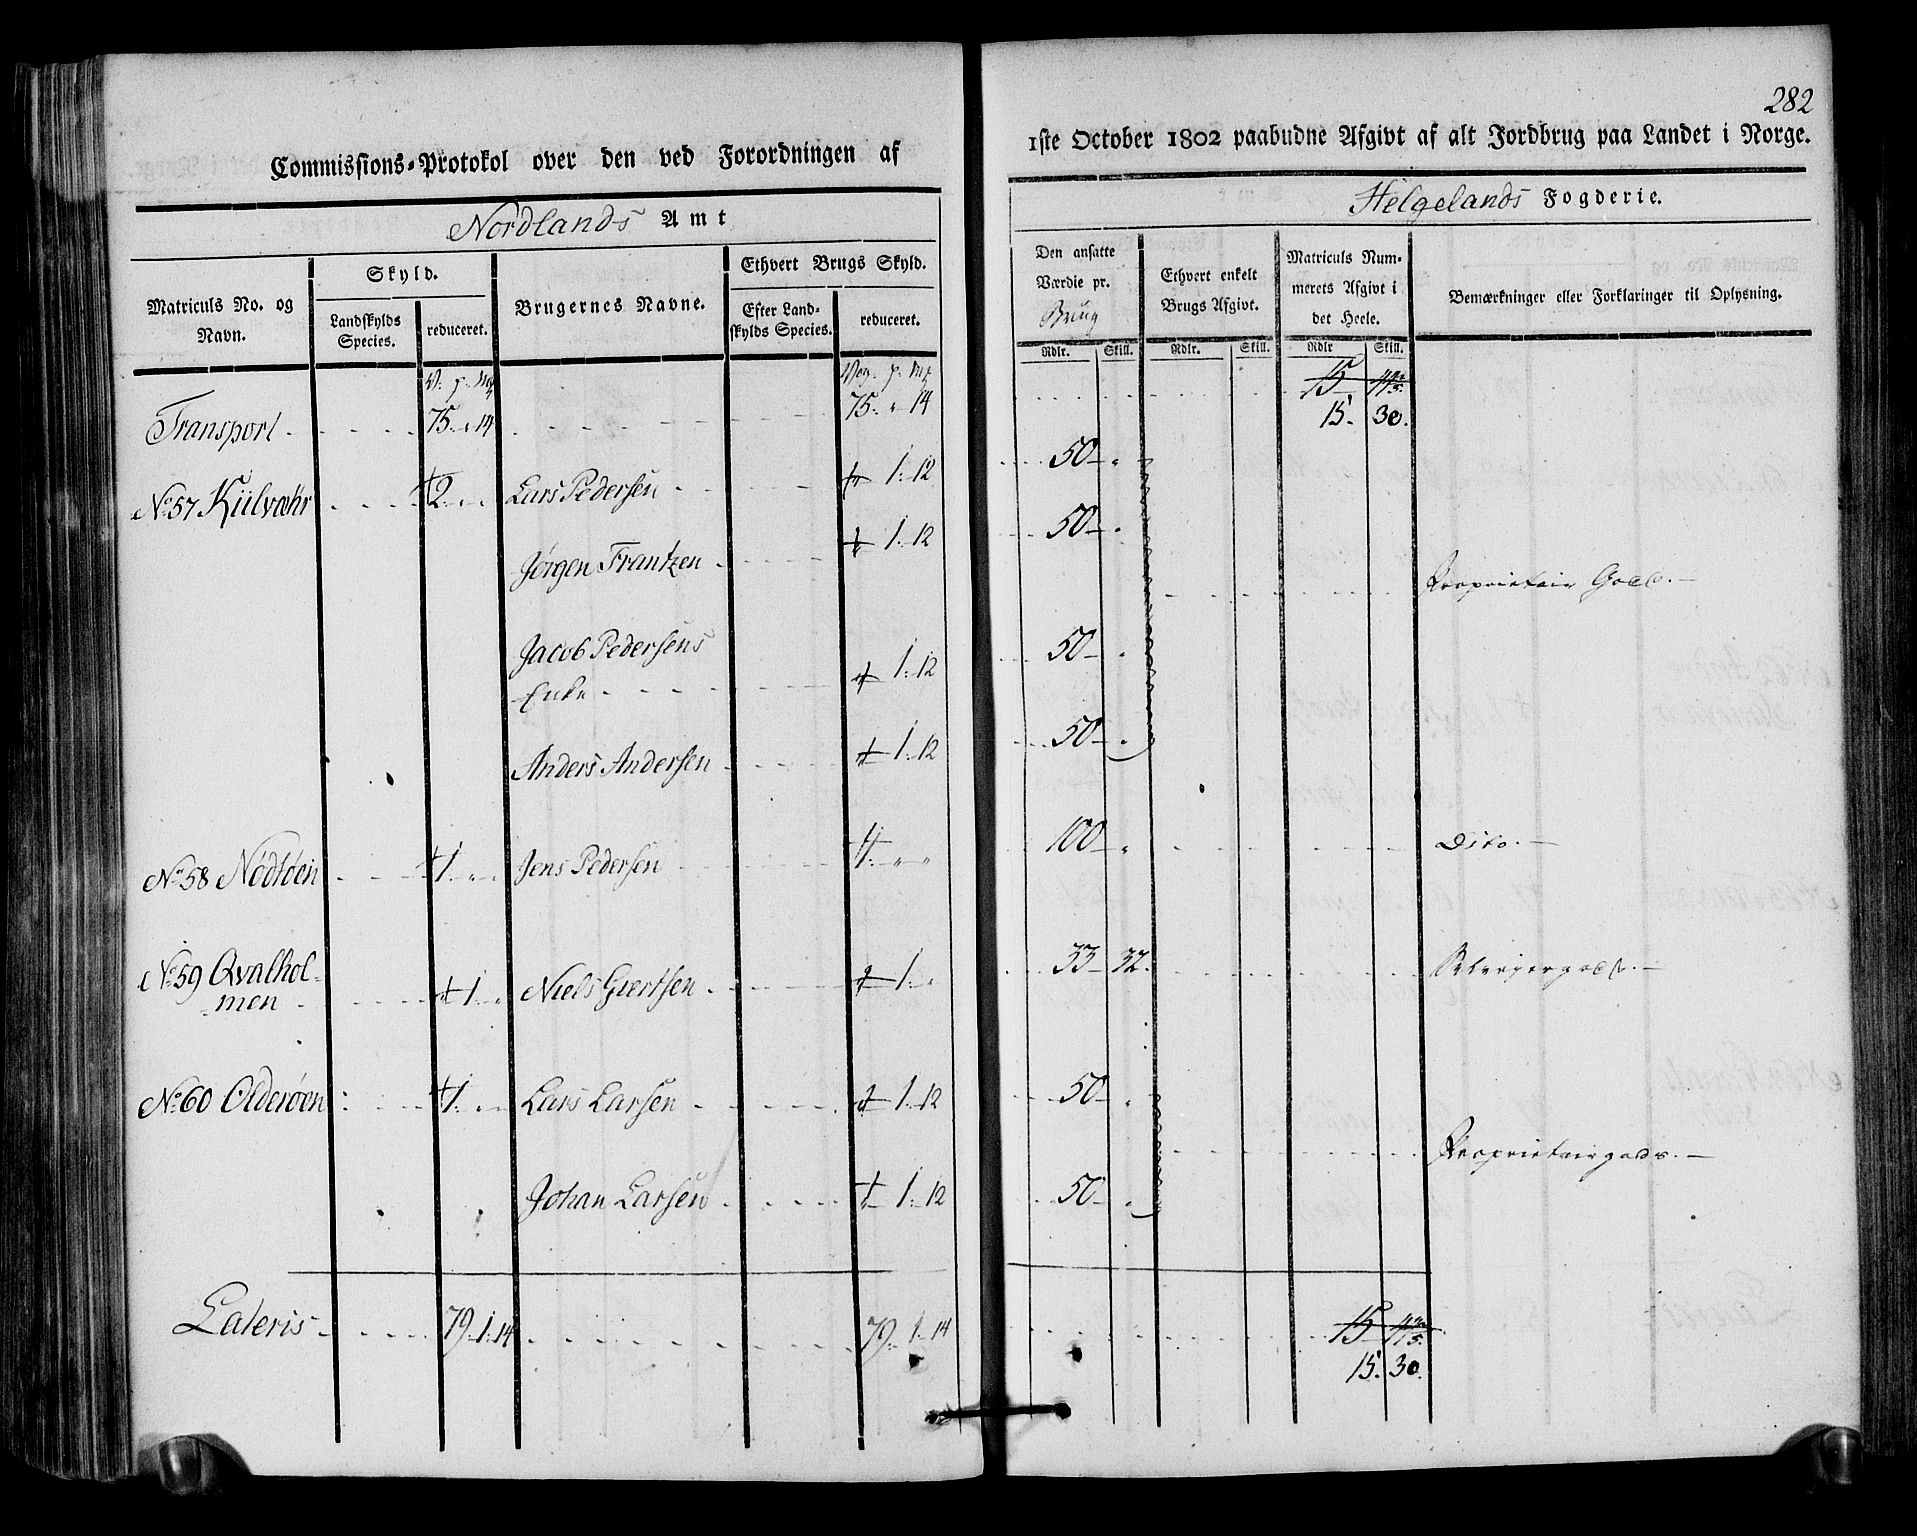 282
Commissions-Protokol over den ved Forordningen af
1ste October 1802 paabudne Afgivt af alt Jordbrug paa Landet i Norge.
Nordlands Amt
Helgelands Fogderie.
Matriculs No. og Navn.
Skyld.
Landskylds Species.
reduceret.
Brugernes Navne.
Ethvert Brugs Skyld.
Efter Landskylds Species.
reduceret.
Den ansatte Værdie pr. Brug
Rdlr. Skill.
Ethvert enkelt Brugs Afgivt.
Rdlr. Skill.
Matriculs Nummerets Afgivt i det Heele.
Rdlr Skill.
Bemærkninger eller Forklaringer til Oplysning.
Transport 75 " 14 75 " 14 15
15. 30.
No 57 Kiilvæhr 2 Lars Pedersen 1: 12 50
Jørgen Frantzen 1: 12 50
Proprietair Gods.
Jacob Pedersens
Enke 1: 12 50
Anders Andersen 1: 12 50
No 58 Nødtøen 1 Jens Pedersen 1 " " 100 Dito.
No 59 Qvalhol-
men 1 Niels Giertsen 1 33 32.
No 60 Olderøen 1 Lars Larsen 1: 12 50
Proprietairgods.
Johan Larsen 1: 12 50
Lateris 79 1 14 79 1 14 15
15. 30.